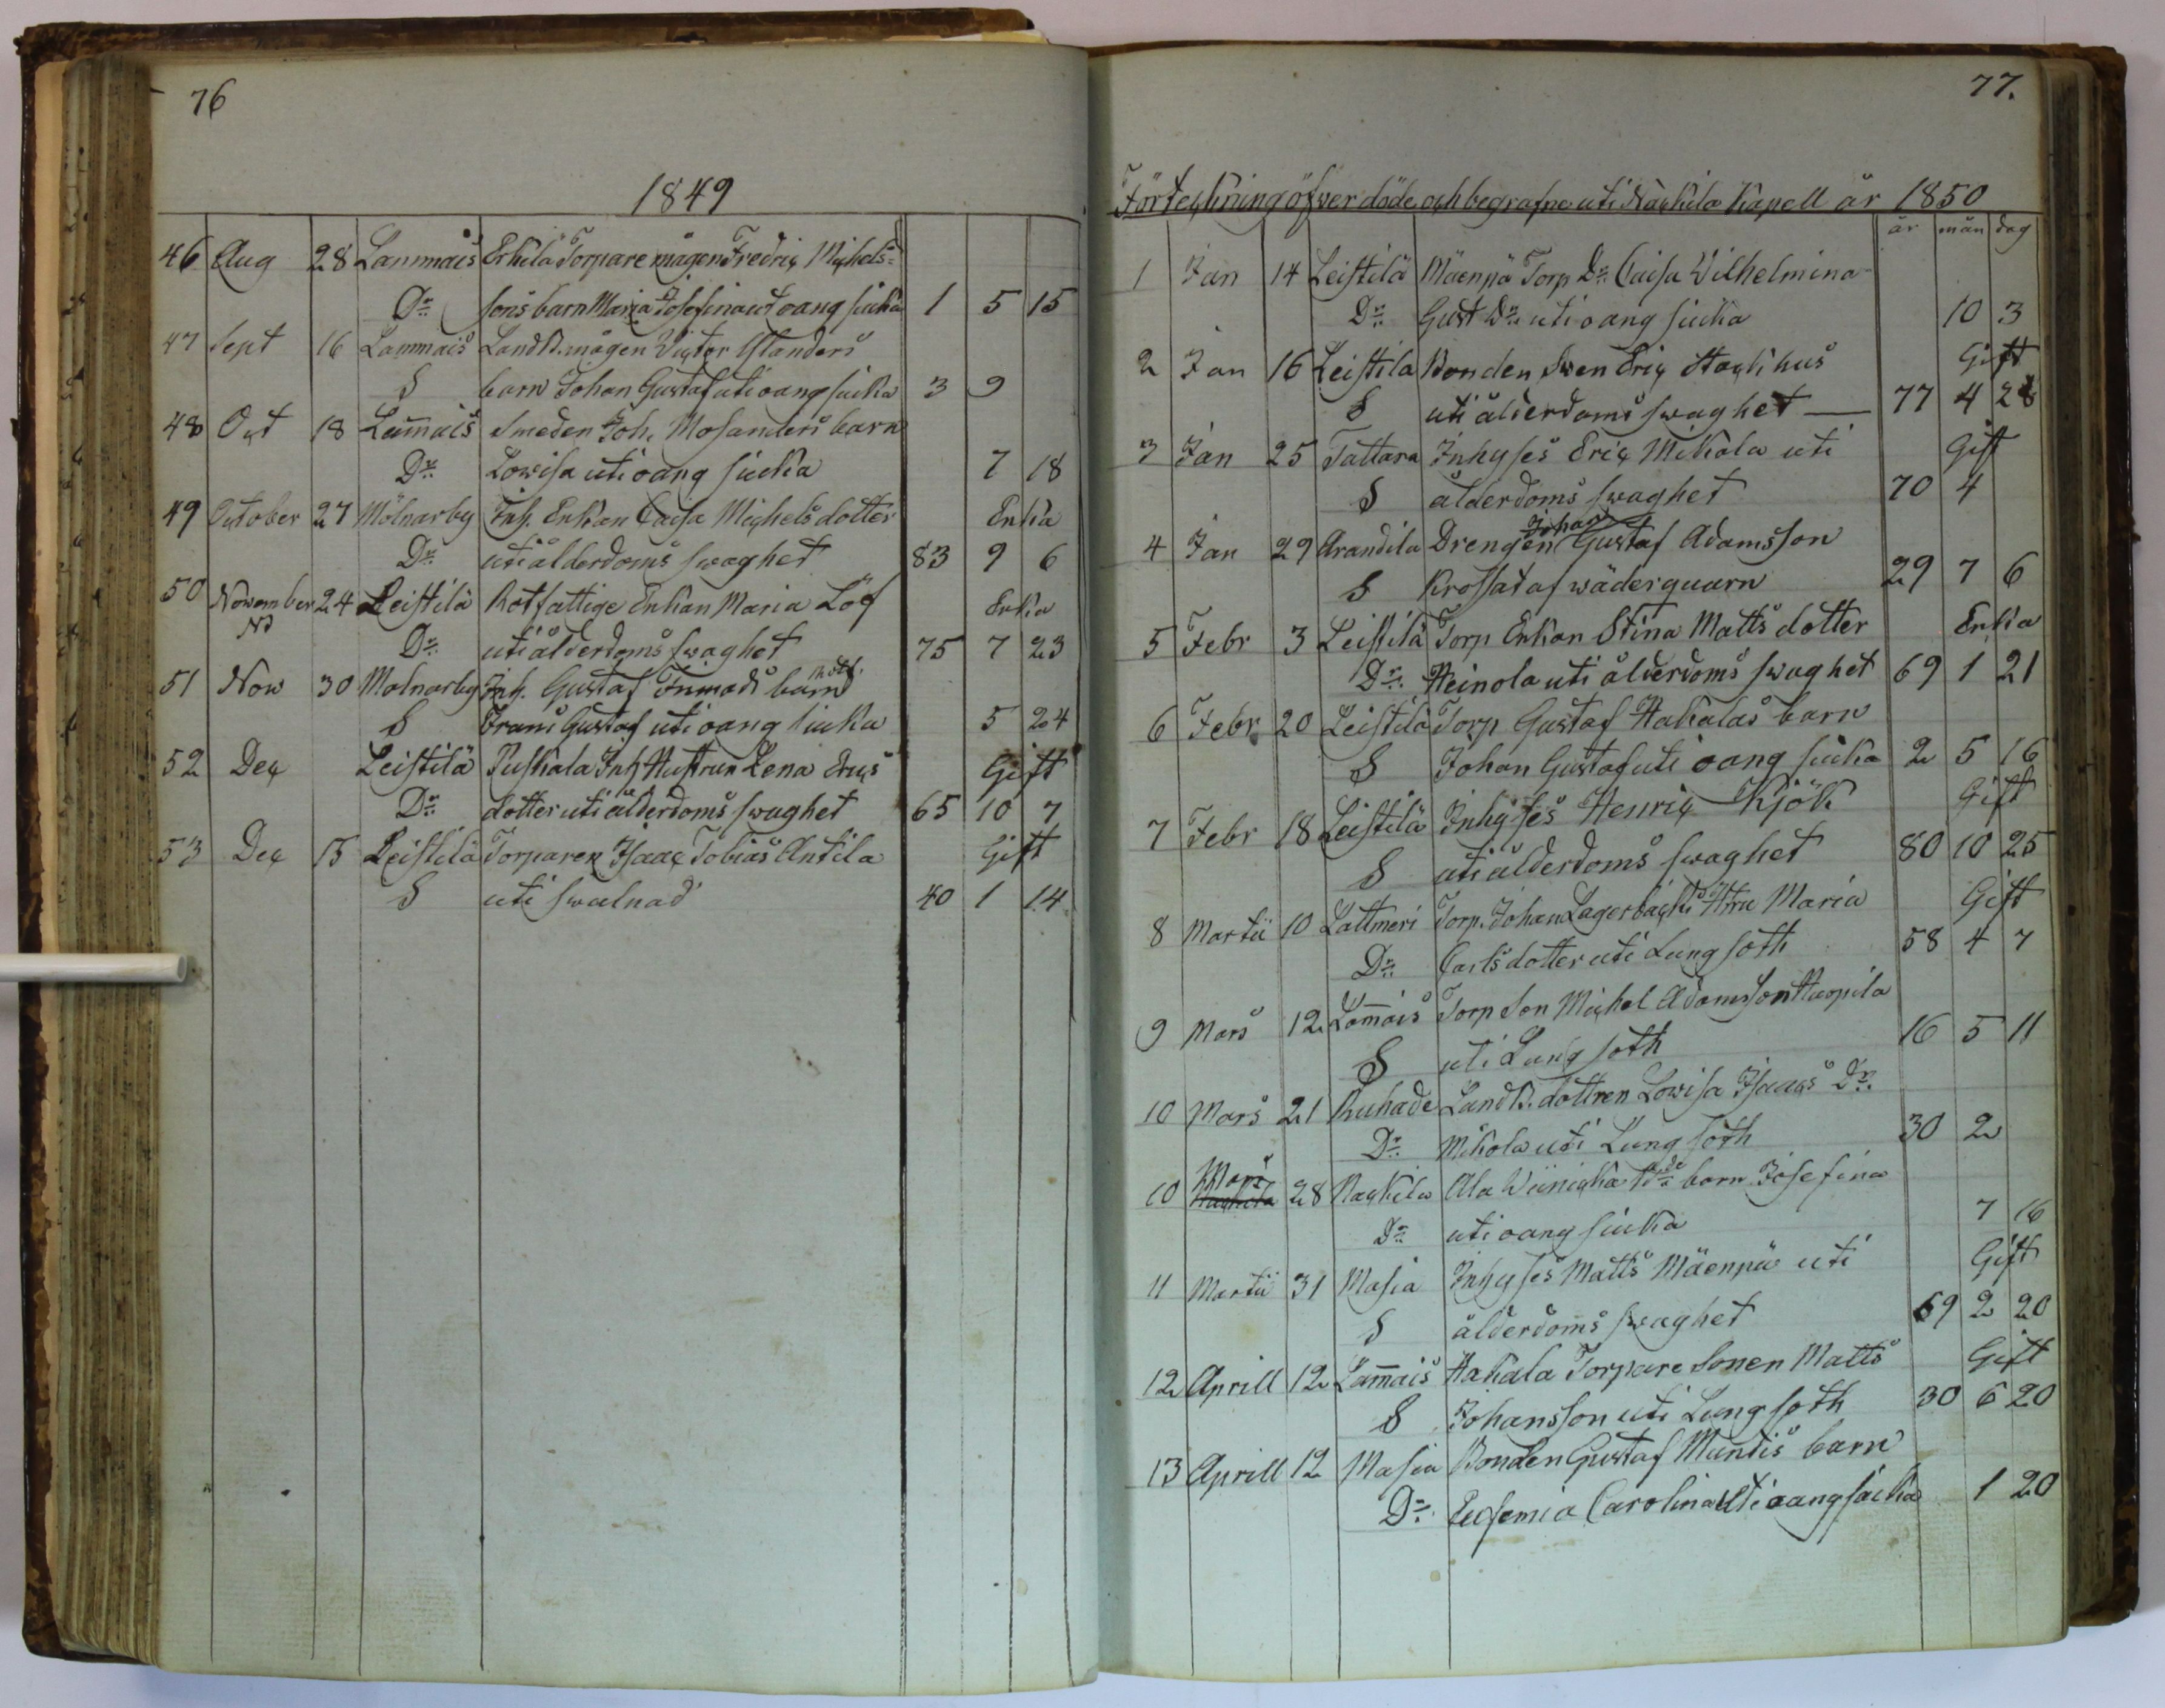 76
1849
46 Aug 28 Lammais Erkilä Torpare mågen Fredriç Miçhels=
Dr sons barn Maria Josefina uti oang siuka 1 5 15
47 Sept 16 Lammais LandB. mågen Viçtor Ylanders
S barn Johan Gustaf uti oang siuka 3 9
48 Oçt 18 Lam̄ais Smeden Joh. Mosanders barn
Dr Lowisa uti oang siuka 7 18
49 October 27 Mölnarby Inh. Enkan Caisa Miçhels dotter Enka
Dr uti ålderdoms swaghet 83 9 6
50 Nowember 24 Leistilä Rotfattige Enkan Maria Löf Enka
Dr uti ålderdoms swaghet 75 7 23
51 Now 30 Molnarby Inh. Gustaf barn
S Frans Gustaf uti oang siuka 5 24
52 Deç Leistilä Puskala Inh Hustrun Lena Eriçs Gift
Dr dotter uti ålderdoms swaghet 65 10 7
53 Deç 15 Leistilä Torparen Isaaç Tobias Antila Gift
S uti swulnad 40 1 14
77.
Förteçkning öfwer döde oçh begrafne uti Naçkila Kapell år 1850
år mån dag
1 Jan 14 Leistilä Mäenpä Torp Dr Caisa Wilhelmina
Dr Gust Dr uti oang siuka 10 3
2 Jan 16 Leistila Bonden Swen Eriç Staçkhus Gift
S uti ålderdoms swaghet — 77 4 28
3 Jan 25 Tattara Inhyses Eriç Mikola uti Gift
S ålderdoms swaghet 70 4
Johan
4 Jan 29 Arandila Drengen Gustaf Adamsson
S krossat af wäderquarn 29 7 6
5 Febr 3 Leistilä Torp Enkan Stina Matts dotter Enka
Dr Heinola uti ålderdoms swaghet 69 1 21
6 Febr 20 Leistilä Torp Gustaf Hakalas barn
S Johan Gustaf uti oang siuka 2 5 16
7 Febr 18 Leistilä Inhyses Henriç Kjök Gift
S uti ålderdoms swaghet 80 10 25
8 Martii 10 Lattmeri Torp. Johan Lagerbäçks Hru Maria Gift
Dr Carls dotter uti Lungsoth 58 4 7
9 Mars 12 Lam̄ais Torp Son Miçhel Adamsson Huopila
S uti Lungsoth 16 5 11
10 Mars 21 Ruhade LandB. dottren Lowisa Isaaçs Dr.
Dr Mikola uti Lungsoth 30 2
10 Mars 28 Naçkila Ala Wiiniçka barn Josefina
Dr uti oang siuka 7 16
11 Martii 31 Masia Inhyses Matts Mäenpä uti Gift
S ålderdoms swaghet 69 2 20
12 Aprill 12 Lam̄ais Hakala Torpare Sonen Matts Gift
S Johansson uti Lungsoth 30 6 20
13 Aprill 12 Masia Bonden Gustaf Muntis barn
Dr Eufemia Carolina uti oang siuka 1 20